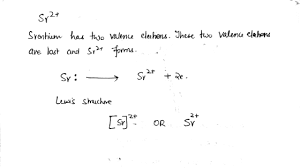 Sr²⁺
Srontium has two valence electrons. These two valence electrons
are lost and Sr²⁺ forms.
Sr: ⟶ Sr²⁺ + 2e.
Lewis structure
[Sr]²⁺ OR Sr²⁺